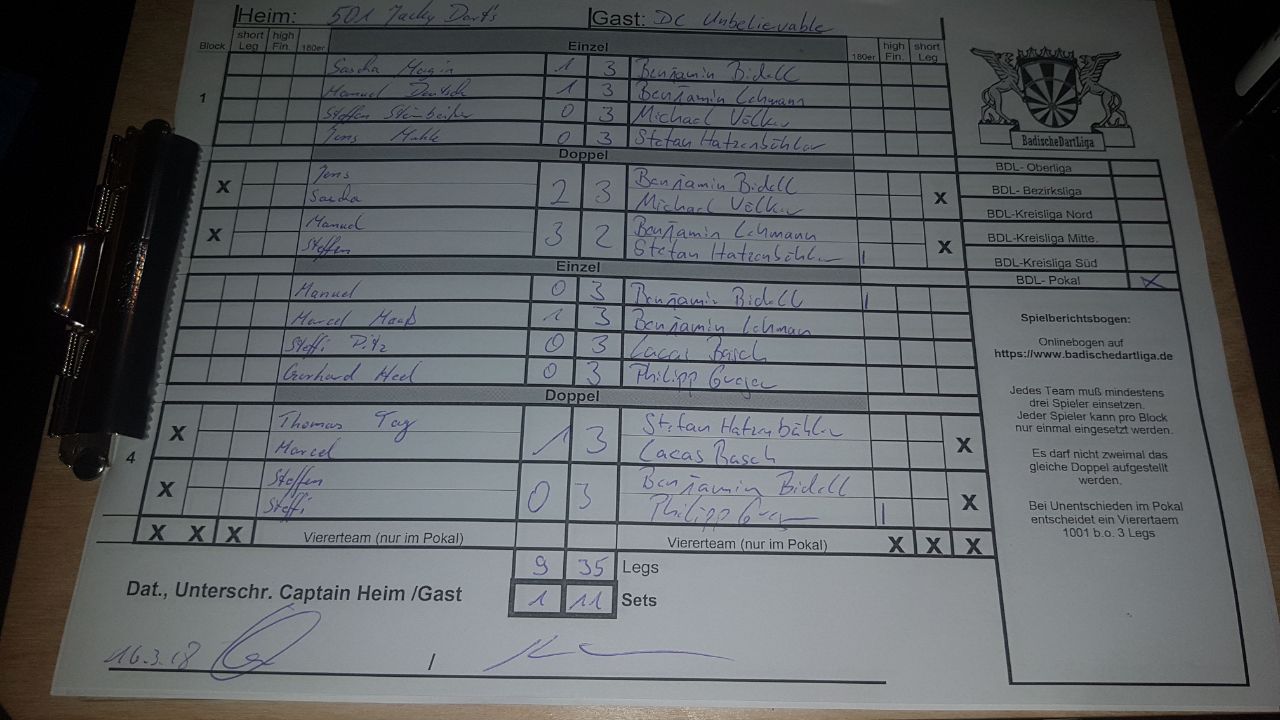 Heim: 501 Jacky Dart's Gast: DC Unbelievable
Block short Leg high Fin. 180er Einzel 180er high Fin. short Leg
1
Sascha 1 3 Benjamin Bidell
Manuel 1 3 Benjamin Lehmann
Steffen 0 3 Michael Völker
Jens 0 3 Stefan Hatzenbühler
Doppel
X Jens 2 3 Benjamin Bidell X
Sascha Michael Völker
X Manuel 3 2 Benjamin Lehmann X
Steffen Stefan Hatzenbühler |
Einzel
Manuel 0 3 Benjamin Bidell |
Marcel Maaß 1 3 Benjamin Lehman
Steffi 0 3 Lucas Rasch
Gerhard 0 3 Philipp
Doppel
4
X Thomas 1 3 Stefan Hatzenbühler X
Marcel Lucas Rasch
X Steffen 0 3 Benjamin Bidell X
Steffi Philipp |
X X X Viererteam (nur im Pokal) Viererteam (nur im Pokal) X X X
9 35 Legs
Dat., Unterschr. Captain Heim /Gast 1 11 Sets
16.3.18 /
BadischeDartLiga
BDL- Oberliga
BDL- Bezirksliga
BDL-Kreisliga Nord
BDL-Kreisliga Mitte.
BDL-Kreisliga Süd
BDL- Pokal X
Spielberichtsbogen:
Onlinebogen auf
https://www.badischedartliga.de
Jedes Team muß mindestens
drei Spieler einsetzen.
Jeder Spieler kann pro Block
nur einmal eingesetzt werden.
Es darf nicht zweimal das
gleiche Doppel aufgestellt
werden.
Bei Unentschieden im Pokal
entscheidet ein Vierertaem
1001 b.o. 3 Legs